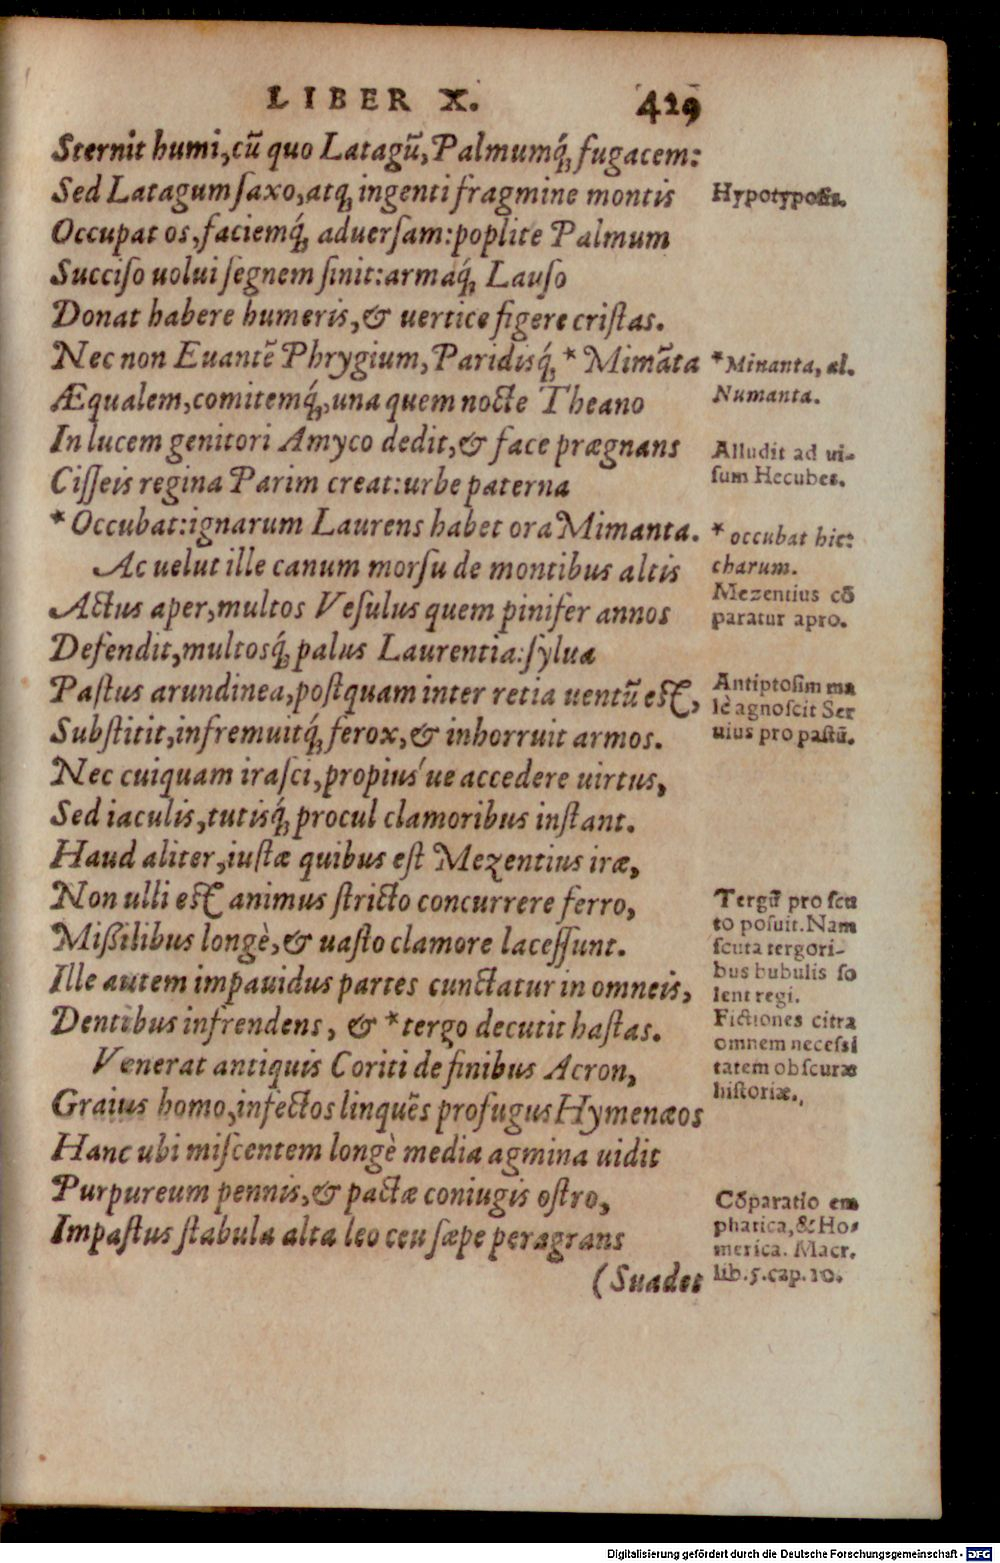 LIBER X. 419
Sternit humi,cũ quo Latagũ,Palmumq́; fugacem:
Sed Latagum saxo,atq; ingenti fragmine montis
Occupat os,faciemq́; aduersam:poplite Palmum
Succiso uolui segnem sinit:armaq́; Lauso
Donat habere humeris,& uertice figere cristas.
Nec non Euantẽ Phrygium,Paridisq́; * Mimãta
Æqualem,comitemq́;,una quem nocte Theano
In lucem genitori Amyco dedit,& face prægnans
Cisseis regina Parim creat:urbe paterna
*Occubat:ignarum Laurens habet ora Mimanta.
Ac uelut ille canum morsu de montibus altis
Actus aper,multos Vesulus quem pinifer annos
Defendit,multosq́; palus Laurentia:sylua
Pastus arundinea,postquam inter retia uentũ est,
Substitit,infremuitq́; ferox,& inhorruit armos.
Nec cuiquam irasci,propius'ue accedere uirtus,
Sed iaculis,tutisq́; procul clamoribus instant.
Haud aliter,iustæ quibus est Mezentius iræ,
Non ulli est animus stricto concurrere ferro,
Mißilibus longè,& uasto clamore lacessunt.
Ille autem impauidus partes cunctatur in omneis,
Dentibus infrendens, & *tergo decutit hastas.
Venerat antiquis Coriti de finibus Acron,
Graius homo,infectos linquẽs profugus Hymenæos
Hanc ubi miscentem longè media agmina uidit
Purpureum pennis,& pactæ coniugis ostro,
Impastus stabula alta leo ceu sæpe peragrans
(Suadet
Hypotyposis.
*Minanta, al.
Numanta.
Alludit ad ui-
sum Hecubes.
* occubat hic:
charum.
Mezentius cõ
paratur apro.
Antiptosim ma
lè agnoscit Ser
uius pro pastũ.
Tergũ pro scu
to posuit. Nam
scuta tergori-
bus bubulis so
lent regi.
Fictiones citra
omnem necessi
tatem obscuræ
historiæ.
Cõparatio em
phatica,& Ho-
merica. Macr.
lib.5.cap.10.
Digitalisierung gefördert durch die Deutsche Forschungsgemeinschaft - DFG